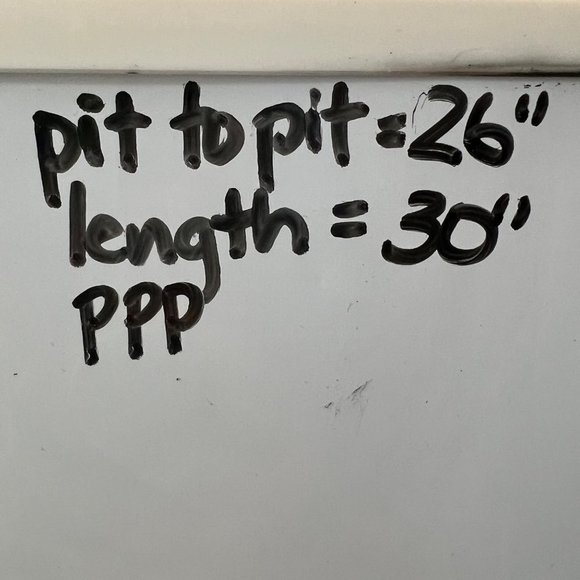 pit to pit = 26"
length = 30"
PPP